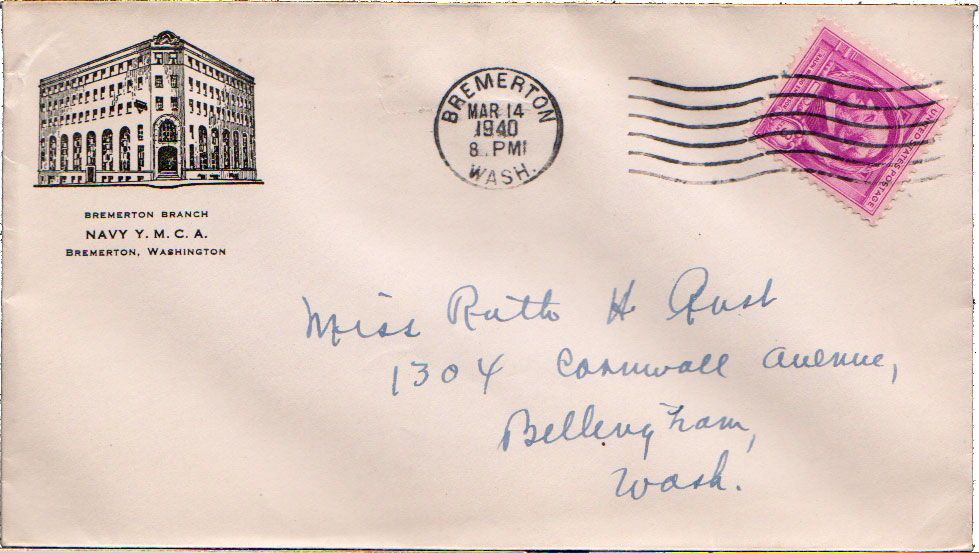 BREMERTON BRANCH
NAVY Y. M. C. A.
BREMERTON, WASHINGTON
BREMERTON
MAR 14
1940
8. PM
WASH.
UNITED STATES POSTAGE
Miss Ruth H Rust
1304 Cornwall Avenue,
Bellingham,
Wash.